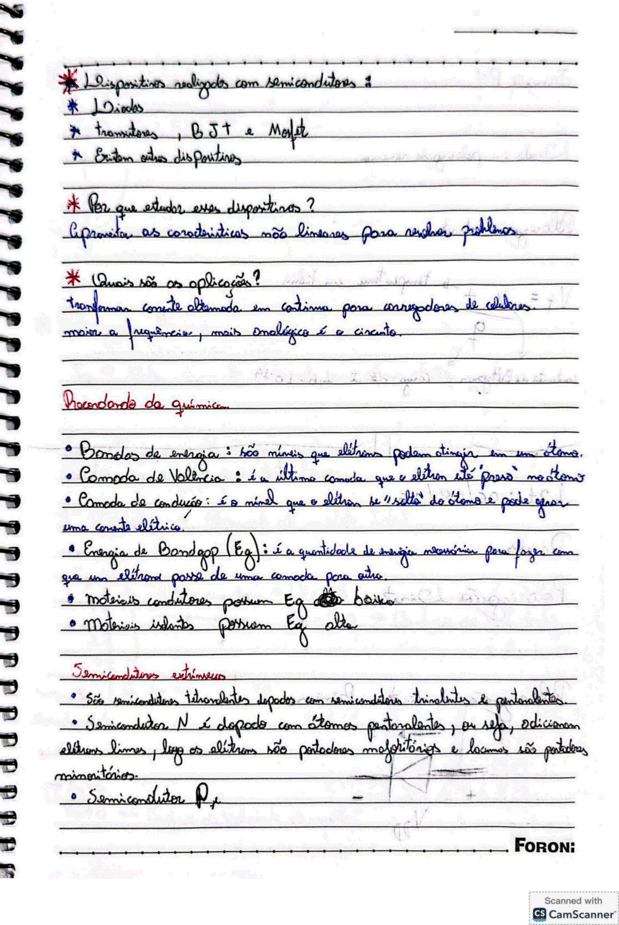 * Dispositivos realizados com semicondutores:
* Diodos
* transitores, BJT e Mosfet
* Existem outros dispositivos
* Por que estudar esses dispositivos?
Aproveitar as caracteristicas não lineares para resolver problemas
* Quais são as aplicações?
transformar corrente alternada em continua para carregadores de celulares.
maior a freqência, mais analógico é o circuito.
Recordando da química
• Bandas de energia: são níveis que elétrons podem atingir em um átomo.
• Camada de Valência: é a última camada que o elétron está "preso" no átomo
• Camada de condução: é o nível que o elétron se "solta" do átomo e pode gerar
uma corrente elétrica.
• Energia de Bandgap (Eg): é a quantidade de energia necessária para fazer com
que um elétron passe de uma camada para outra.
• Materiais condutores possuem Eg baixa
• Materiais isolantes possuem Eg alta
Semicondutores extrínsecos
• São semicondutores tetravalentes dopados com semicondutores trivalentes e pentavalentes.
• Semicondutor N é dopado com átomos pentavalentes, ou seja, adicionam
elétrons livres, logo os elétrons são portadores majoritários e lacunas são portadores
minoritários.
• Semicondutor P
- +
FORONI
Scanned with
CS CamScanner